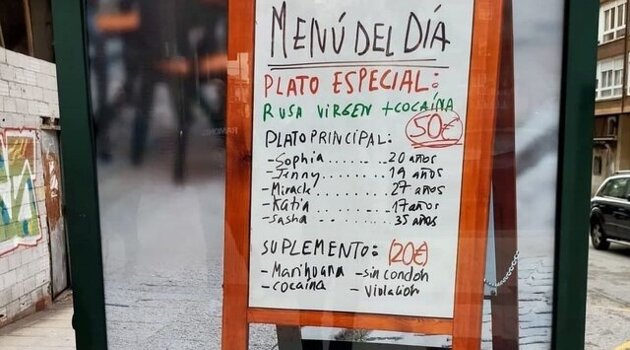 MENÚ DEL DÍA
PLATO ESPECIAL:
RUSA VIRGEN + COCAÍNA
50€
PLATO PRINCIPAL:
- Sophia ........ 20 años
- Jenny ........ 19 años
- Miracle ....... 27 años
- Katia ........ 17 años
- Sasha ........ 35 años
SUPLEMENTO: (20€)
- Marihuana - sin condón
- cocaína - Violación